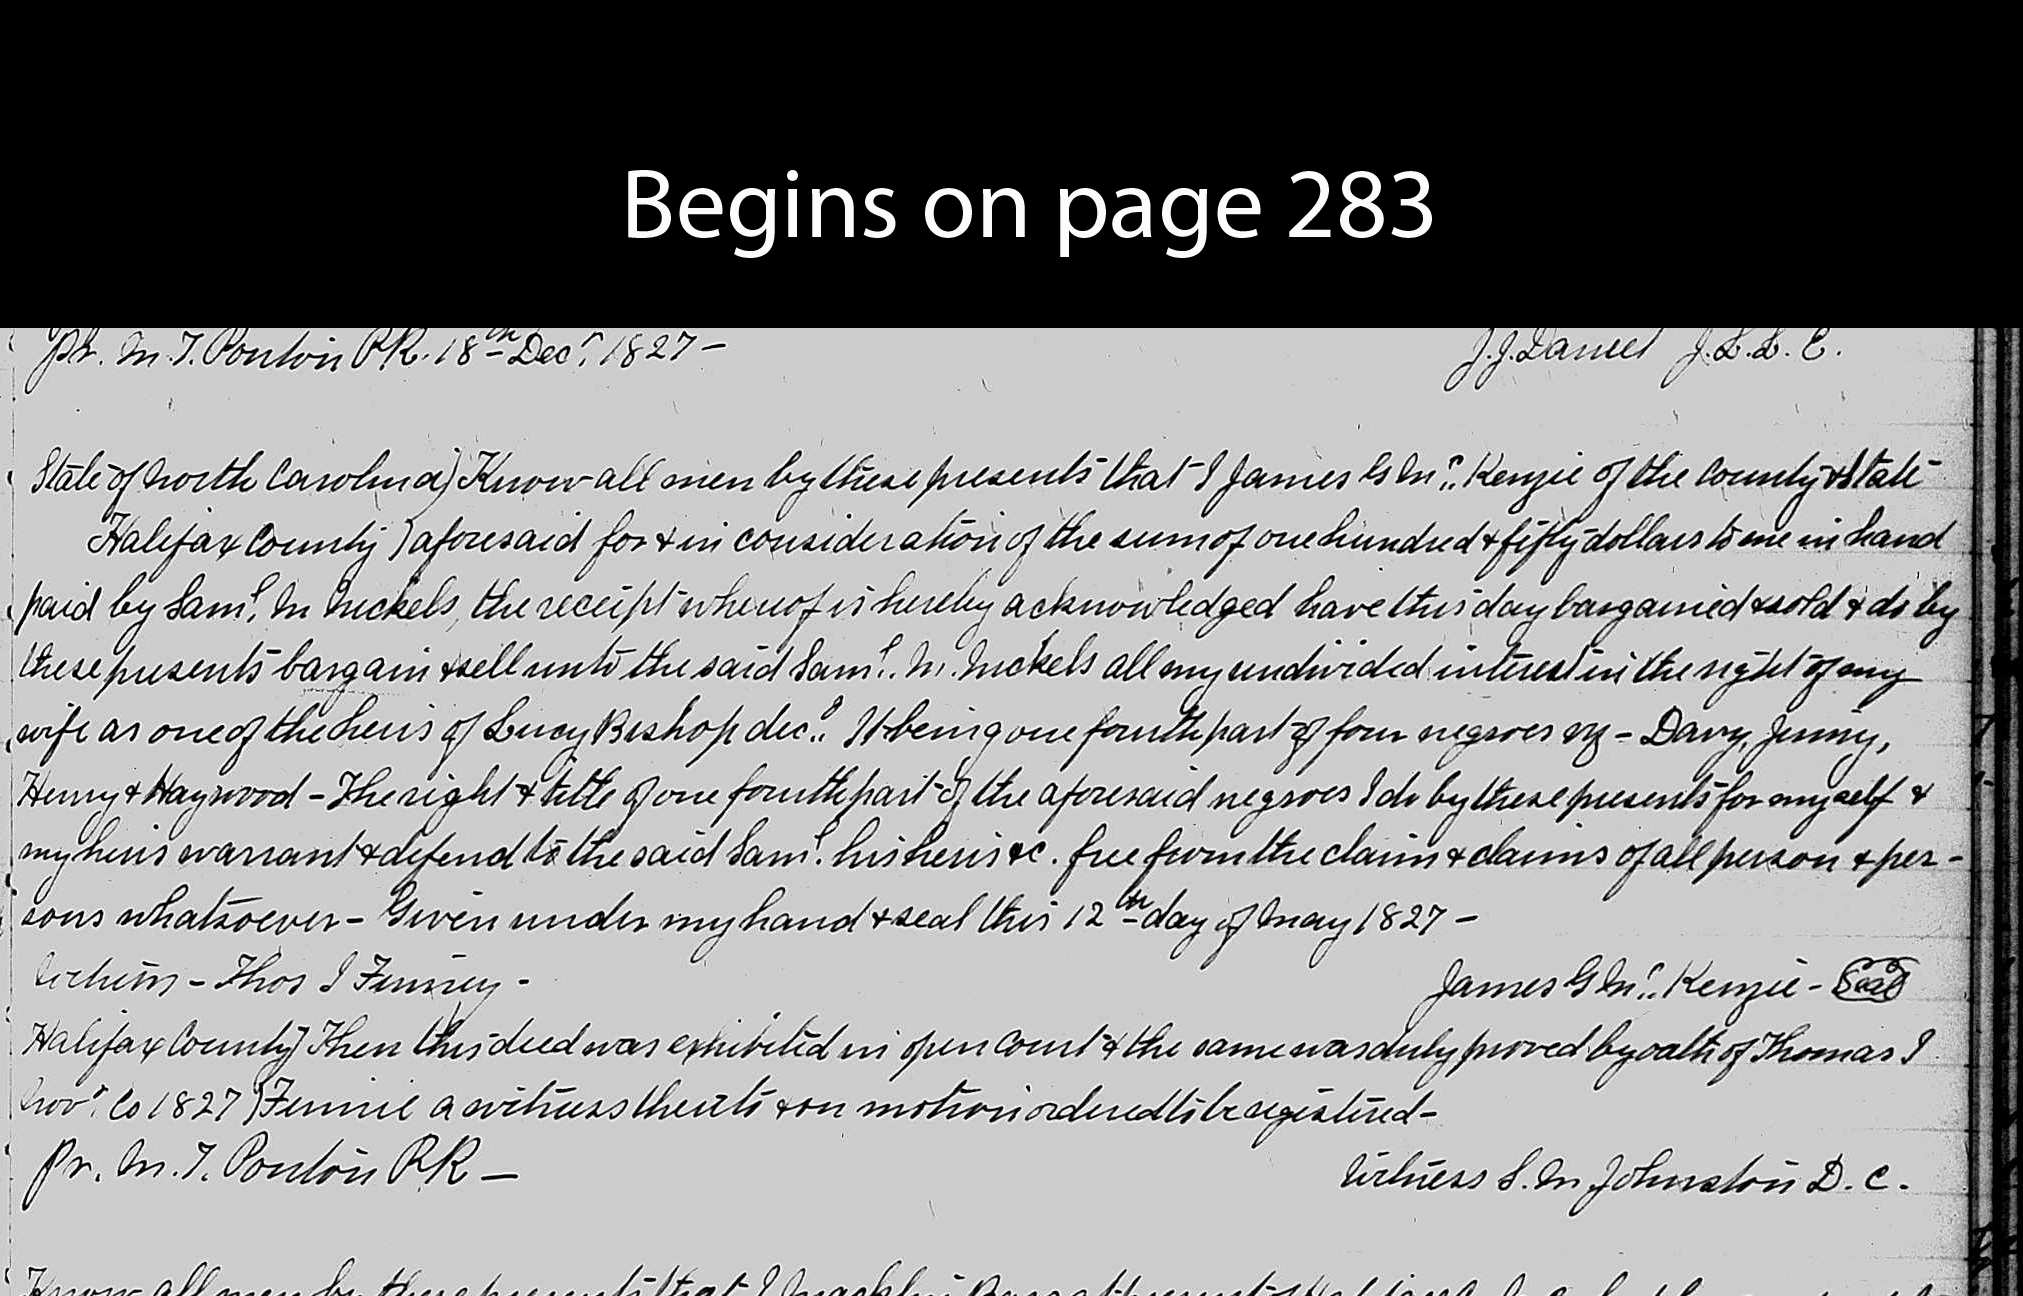 Begins on page 283
pr. M. T. Ponton P.R. 18th Decr. 1827 -
J. J. Daniel J.S.L.E.
State of North Carolina) Know all men by these presents that I James G Mc. Kenzie of the County & State
Halifax County ) aforesaid for & in consideration of the sum of one hundred & fifty dollars to me in hand
paid by Saml. M Nickels, the receipt whereof is hereby acknowledged have this day bargained & sold & do by
these presents bargain & sell unto the said Saml. M. Nickels all my undivided interest in the right of my
wife as one of the heirs of Lucy Bishop decd. It being one fourth part of four negroes viz - Davy, Jenny,
Henry & Haywood - The right & title of one fourth part of the aforesaid negroes I do by these presents for myself &
my heirs warrant & defend to the said Saml. his heirs &c. free from the claim & claims of all person & per-
sons whatsoever - Given under my hand & seal this 12th day of May 1827 -
Witness - Thos I Finney -
James G Mc. Kenzie - Seal
Halifax County) Then this deed was exhibited in open court & the same was duly proved by oath of Thomas I
Novr. Co 1827 ) Finnie a witness thereto & on motion ordered to be registered -
pr. M. T. Ponton P.R -
Witness S. M Johnston D. C.
Know all men by these presents that I